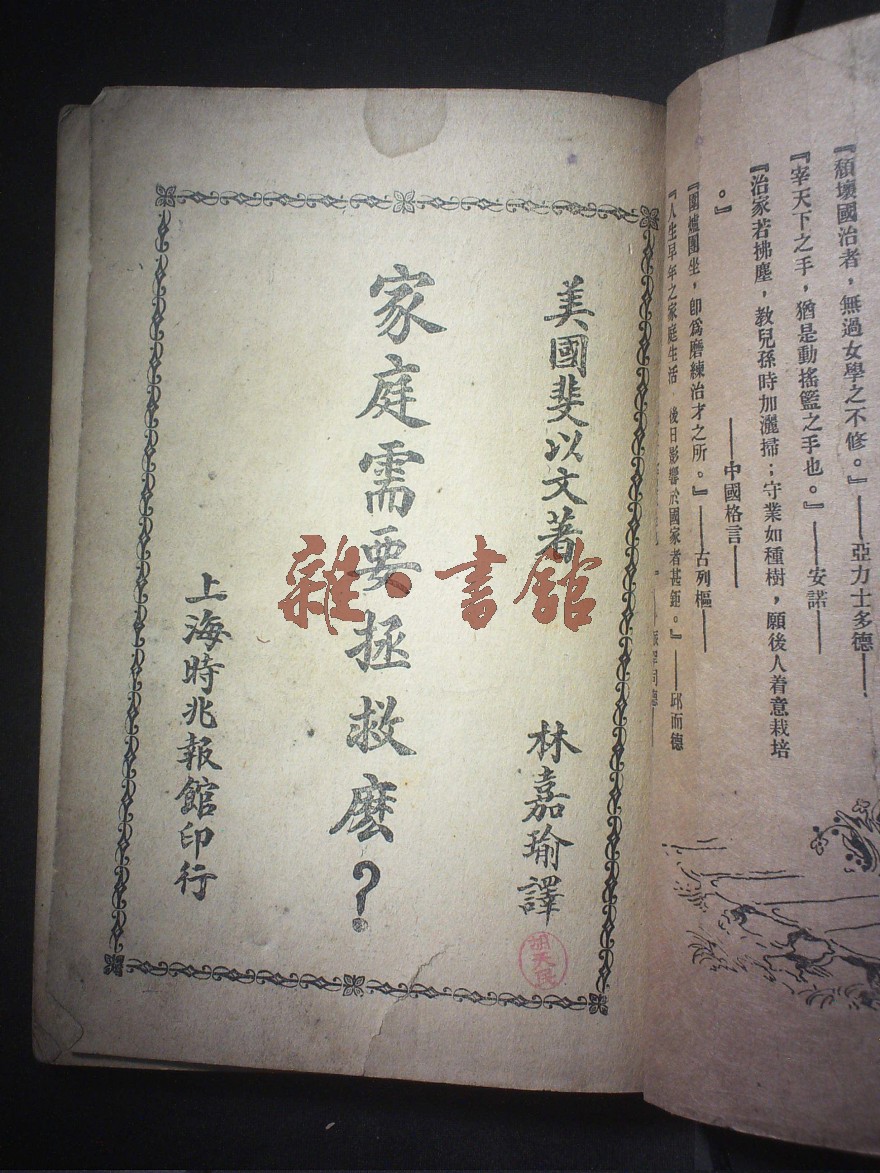 『頹壞國治者，無過女學之不修。』——亞力士多德——
『宰天下之手，猶是動搖籃之手也。』——安諾——
『治家若拂塵，教兒孫時加灑掃；守業如種樹，願後人着意栽培
。』——中國格言——
『圍爐團坐，卽爲磨練治才之所。』——古列樞——
『人生早年之家庭生活，後日影響於國家者甚鉅。』——邱而德
美國斐以文著 林嘉瑜譯
家庭需要拯救麽？
上海時兆報館印行
胡天民
雜·書館